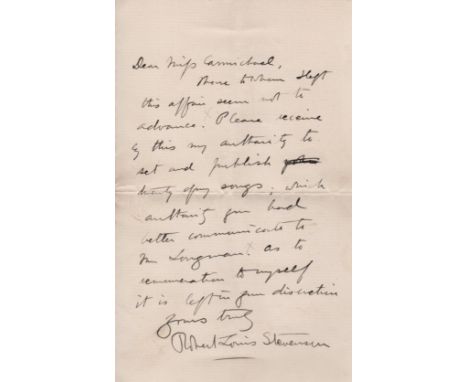 Dear Miss Carmichael,
those to whom I left
this affair seem not to
advance. Please receive
by this my authority to
set and publish
of my songs; which
authority you had
better communicate to
Mr Longman. As to
remuneration to myself
it is left in your discretion
Yours truly
Robert Louis Stevenson